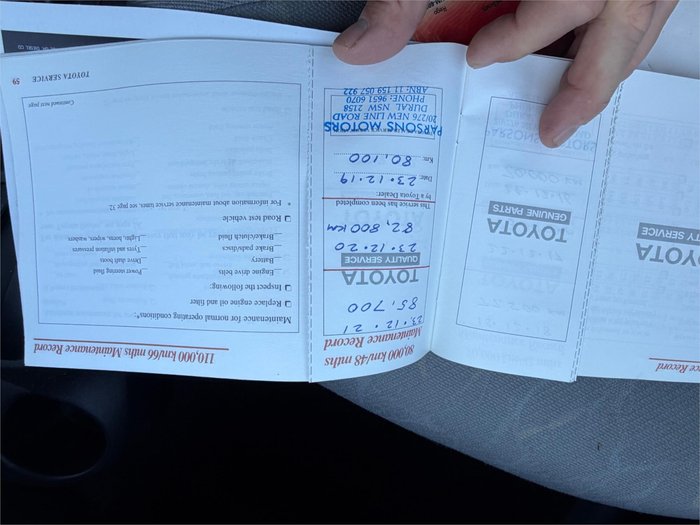 80,000 km/48 mths
Maintenance Record
23·12·21
85,700
TOYOTA
QUALITY SERVICE
23·12·20
82,800 KM
This service has been completed
by a Toyota Dealer.
Date: 23·12·19
Km: 80,100
PARSONS MOTORS
20/76 NEW LINE ROAD
DURAL NSW 2158
PHONE: 9651 6070
ABN: 11 159 057 922
110,000 km/66 mths Maintenance Record
Maintenance for normal operating conditions*:
Replace engine oil and filter
Inspect the following:
Engine drive belts
Battery
Brake pads/discs
Brake/clutch fluid
Power steering fluid
Drive shaft boots
Tyres and inflation pressures
Lights, horns, wipers, washers
Road test vehicle
* For information about maintenance service times, see page 32.
Continued next page
TOYOTA SERVICE 59
TOYOTA
GENUINE PARTS
Maintenance Record
TOYOTA
QUALITY SERVICE